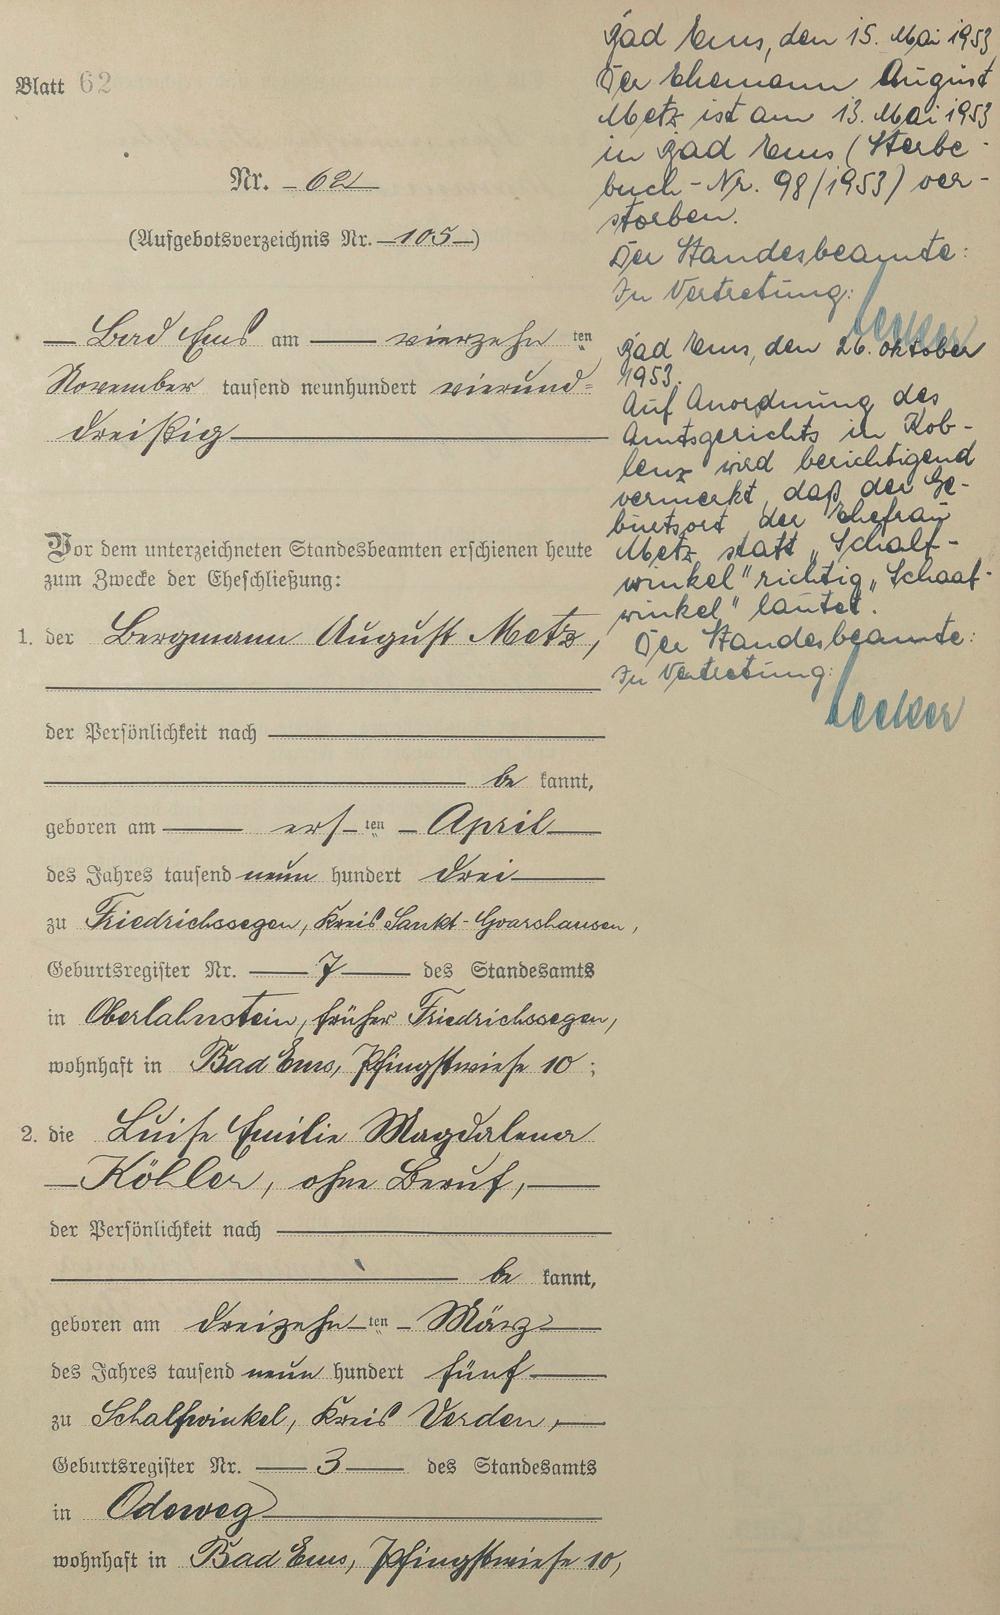 Blatt 62
Nr. 62
(Aufgebotsverzeichnis Nr. 105)
Bad Ems am vierzehn ten
November tausend neunhundert vierund-
dreißig
Vor dem unterzeichneten Standesbeamten erschienen heute
zum Zwecke der Eheschließung:
1. der Bergmann August Metz,
der Persönlichkeit nach
be kannt,
geboren am ers ten April
des Jahres tausend neun hundert drei
zu Friedrichssegen, Kreis Sankt-Goarshausen,
Geburtsregister Nr. 7 des Standesamts
in Oberlahnstein, früher Friedrichssegen,
wohnhaft in Bad Ems, Pfingstwiese 10;
2. die Luise Emilie Magdalena
Köhler, ohne Beruf,
der Persönlichkeit nach
be kannt,
geboren am dreizehn ten März
des Jahres tausend neun hundert fünf
zu Schalfwinkel, Kreis Verden,
Geburtsregister Nr. 3 des Standesamts
in Odeweg
wohnhaft in Bad Ems, Pfingstwiese 10,
Bad Ems, den 15. Mai 1953
Der Ehemann August
Metz ist am 13. Mai 1953
in Bad Ems (Sterbe-
buch-Nr. 98/1953) ver-
storben.
Der Standesbeamte:
In Vertretung:
Bad Ems, den 26. Oktober
1953.
Auf Anordnung des
Amtsgerichts in Kob-
lenz wird berichtigend
vermerkt, daß der Ge-
burtsort der Ehefrau
Metz statt „Schalf-
winkel" richtig „Schaaf-
winkel" lautet.
Der Standesbeamte:
In Vertretung: